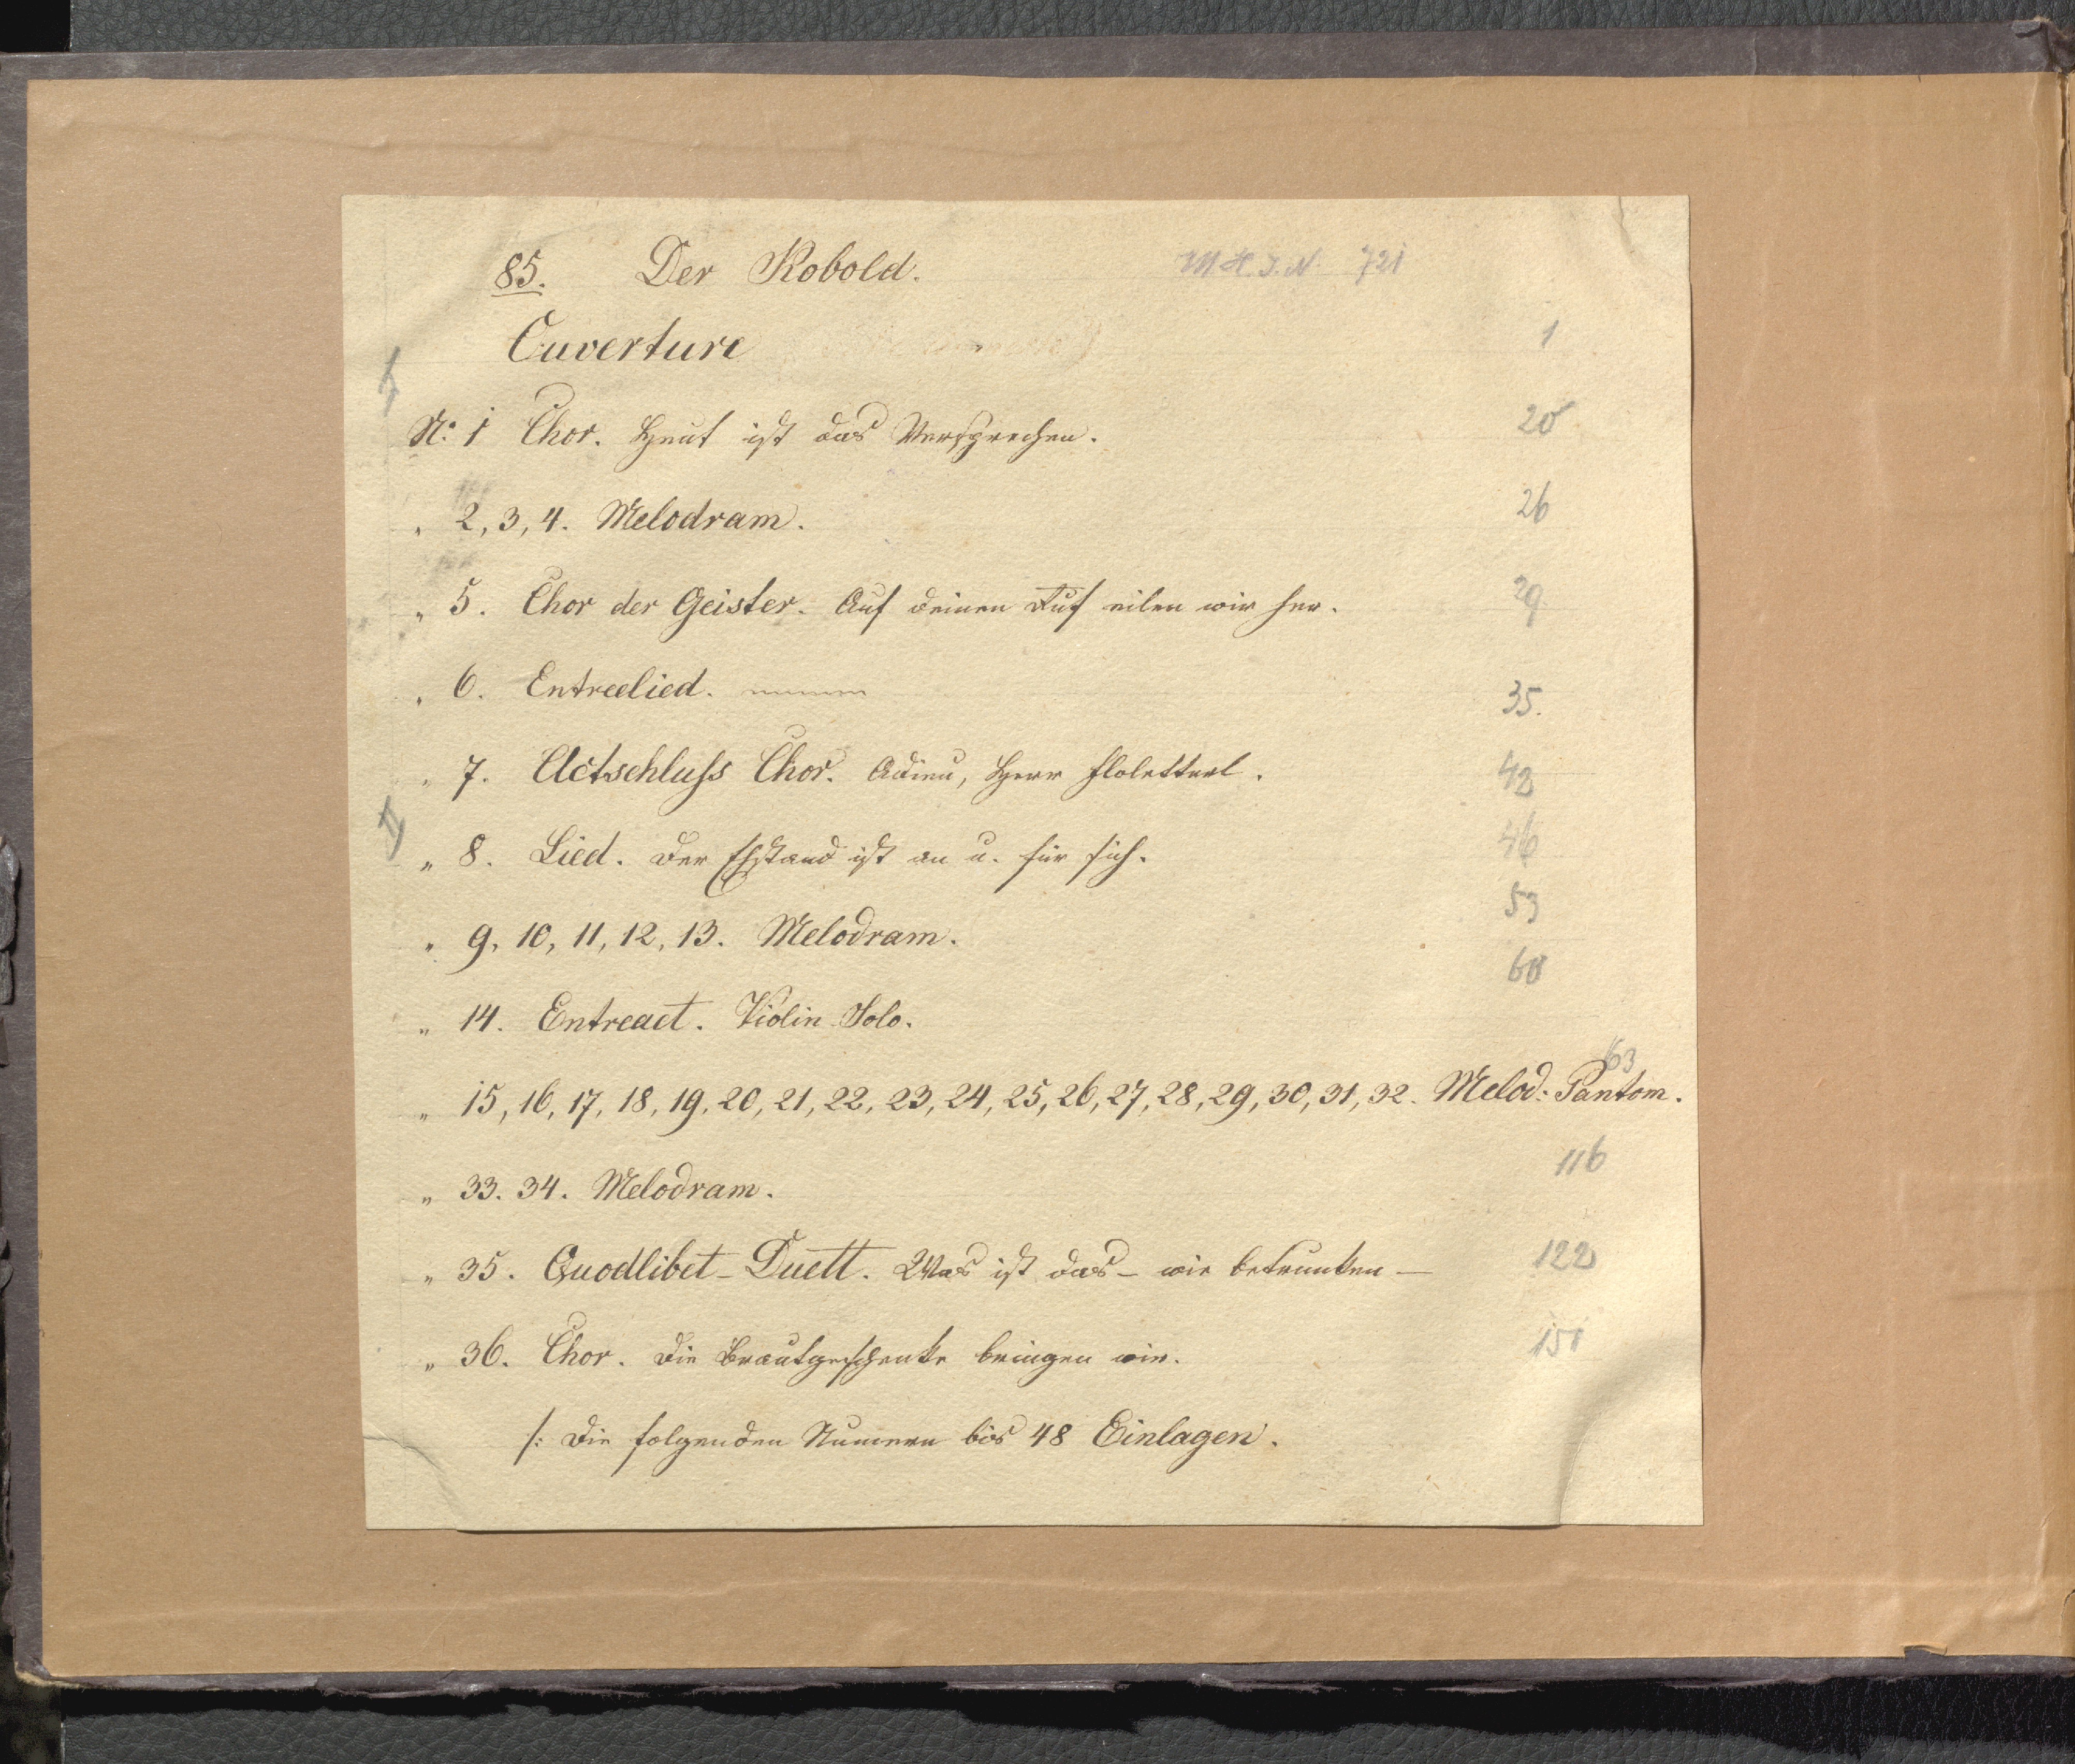 85. Der Kobold. M.H.I.N. 721
Ouverture 1
I
No: 1 Chor. Heut ist das Versprechen. 20
" 2, 3, 4. Melodram. 26
" 5. Chor der Geister. Auf deinen Ruf eilen wir her. 29
" 6. Entreelied. 35.
" 7. Actschluss Chor. Adieu, Herr Floletterl. 42
II
" 8. Lied. Der Ehstand ist an u. für sich. 46
" 9, 10, 11, 12, 13. Melodram. 53
" 14. Entreact. Violin Solo. 60
" 15, 16, 17, 18, 19, 20, 21, 22, 23, 24, 25, 26, 27, 28, 29, 30, 31, 32. Melod: Pantom. 63
" 33. 34. Melodram. 116
" 35. Quodlibet-Duett. Was ist das – wie betrunken – 122
" 36. Chor. Die Brautgeschenke bringen wir. 151
/: Die folgenden Numern bis 48 Einlagen.